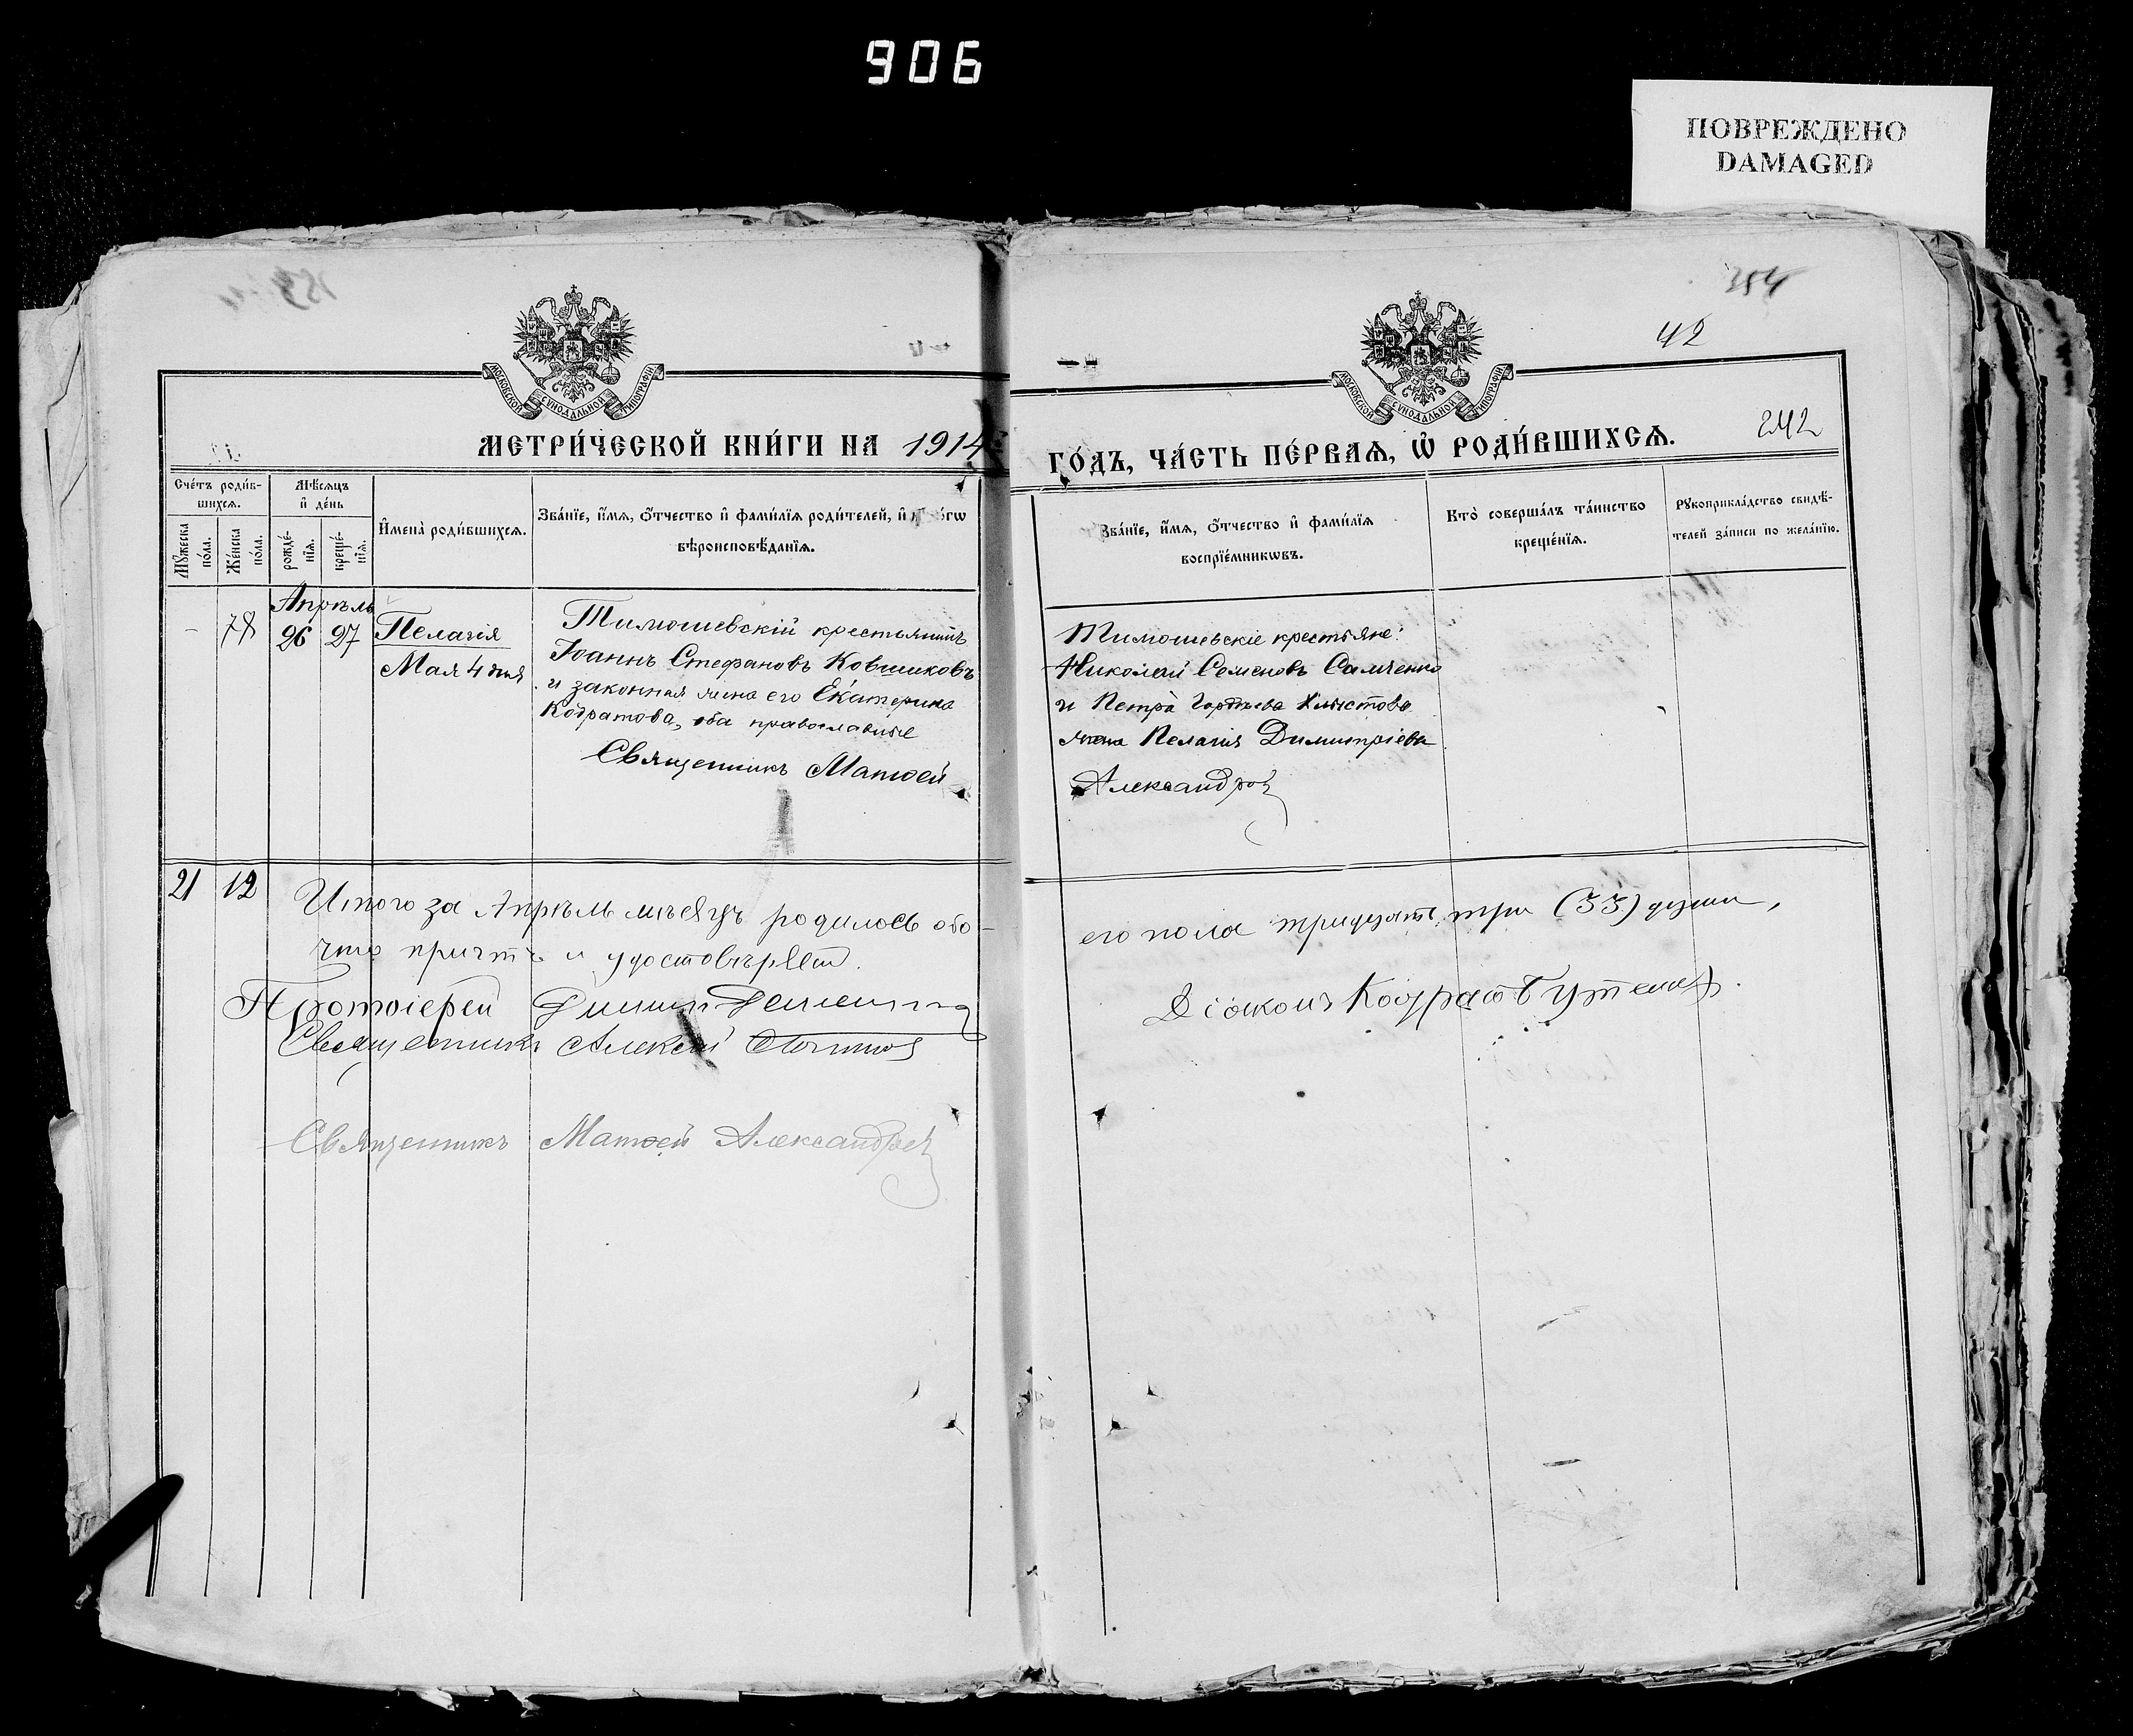 906
ПОВРЕЖДЕНО
DAMAGED
354
42
242
МОСКОВСКОЙ СУНОДАЛЬНОЙ ТИПОГРАФІИ
МОСКОВСКОЙ СУНОДАЛЬНОЙ ТИПОГРАФІИ
МЕТРИ́ЧЕСКОЙ КНИ́ГИ НА 1914
ГО́ДЪ, ЧА́СТЬ ПЕ́РВАѦ, Ѡ҆ РОДИ́ВШИХСѦ.
Сче́тъ роди́в-
шихсѧ.
Мѣ́сѧцъ
и҆ де́нь
Мꙋ́жеска
по́ла.
Же́нска
по́ла.
рожде́-
нїѧ.
креще́-
нїѧ.
И҆мена̀ роди́вшихсѧ.
Зва́нїе, и҆́мѧ, ѻ҆́тчество и҆ фами́лїѧ роди́телей, и҆
вѣроисповѣ́данїѧ.
Зва́нїе, и҆́мѧ, ѻ҆́тчество и҆ фами́лїѧ
воспрїе́мникѡвъ.
Кто̀ соверша́лъ та́инство
креще́нїѧ.
Рꙋкоприкла́дство свидѣ́-
телей за́писи по жела́нїю.
Апрѣль
– 78 26 27 Пелагія
Мая 4 дня
Тимошевскій крестьянинъ
Іоаннъ Стефановъ Ковшиковъ
и законная жена его Екатерина
Кодратова, оба православные
Священникъ Матѳей
Тимошевскіе крестьяне:
Николай Семеновъ Самченко
и Петра Гордѣева Хлыстова
жена Пелагія Димитріева
Александров
21 12
Итого за Апрѣль мѣсяцъ родилось обо-
его пола тридцать три (33) души,
что причтъ и удостовѣряетъ.
Протоіерей
Священникъ Алексѣй
Діаконъ Кодрат
Священникъ Матѳей Александров